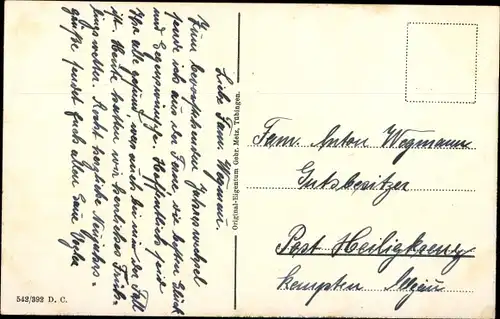 Liebe Fam. Wegmann.
Zum bevorstehenden Jahreswechsel
sende ich aus der Ferne, die besten Glück
und Segenswünsche. Hoffentlich seid
Ihr alle gesund, was auch bei mir der Fall
ist. Heute hatten wir herrliches
Recht herzliche Neujahrs-
grüße sendet Euch allen Eure
Original-Eigentum Gebr. Metz, Tübingen.
Fam. Anton Wegmann
Gutsbesitzer
Post Heiligkreuz
Kempten Allgäu
542/392 D. C.